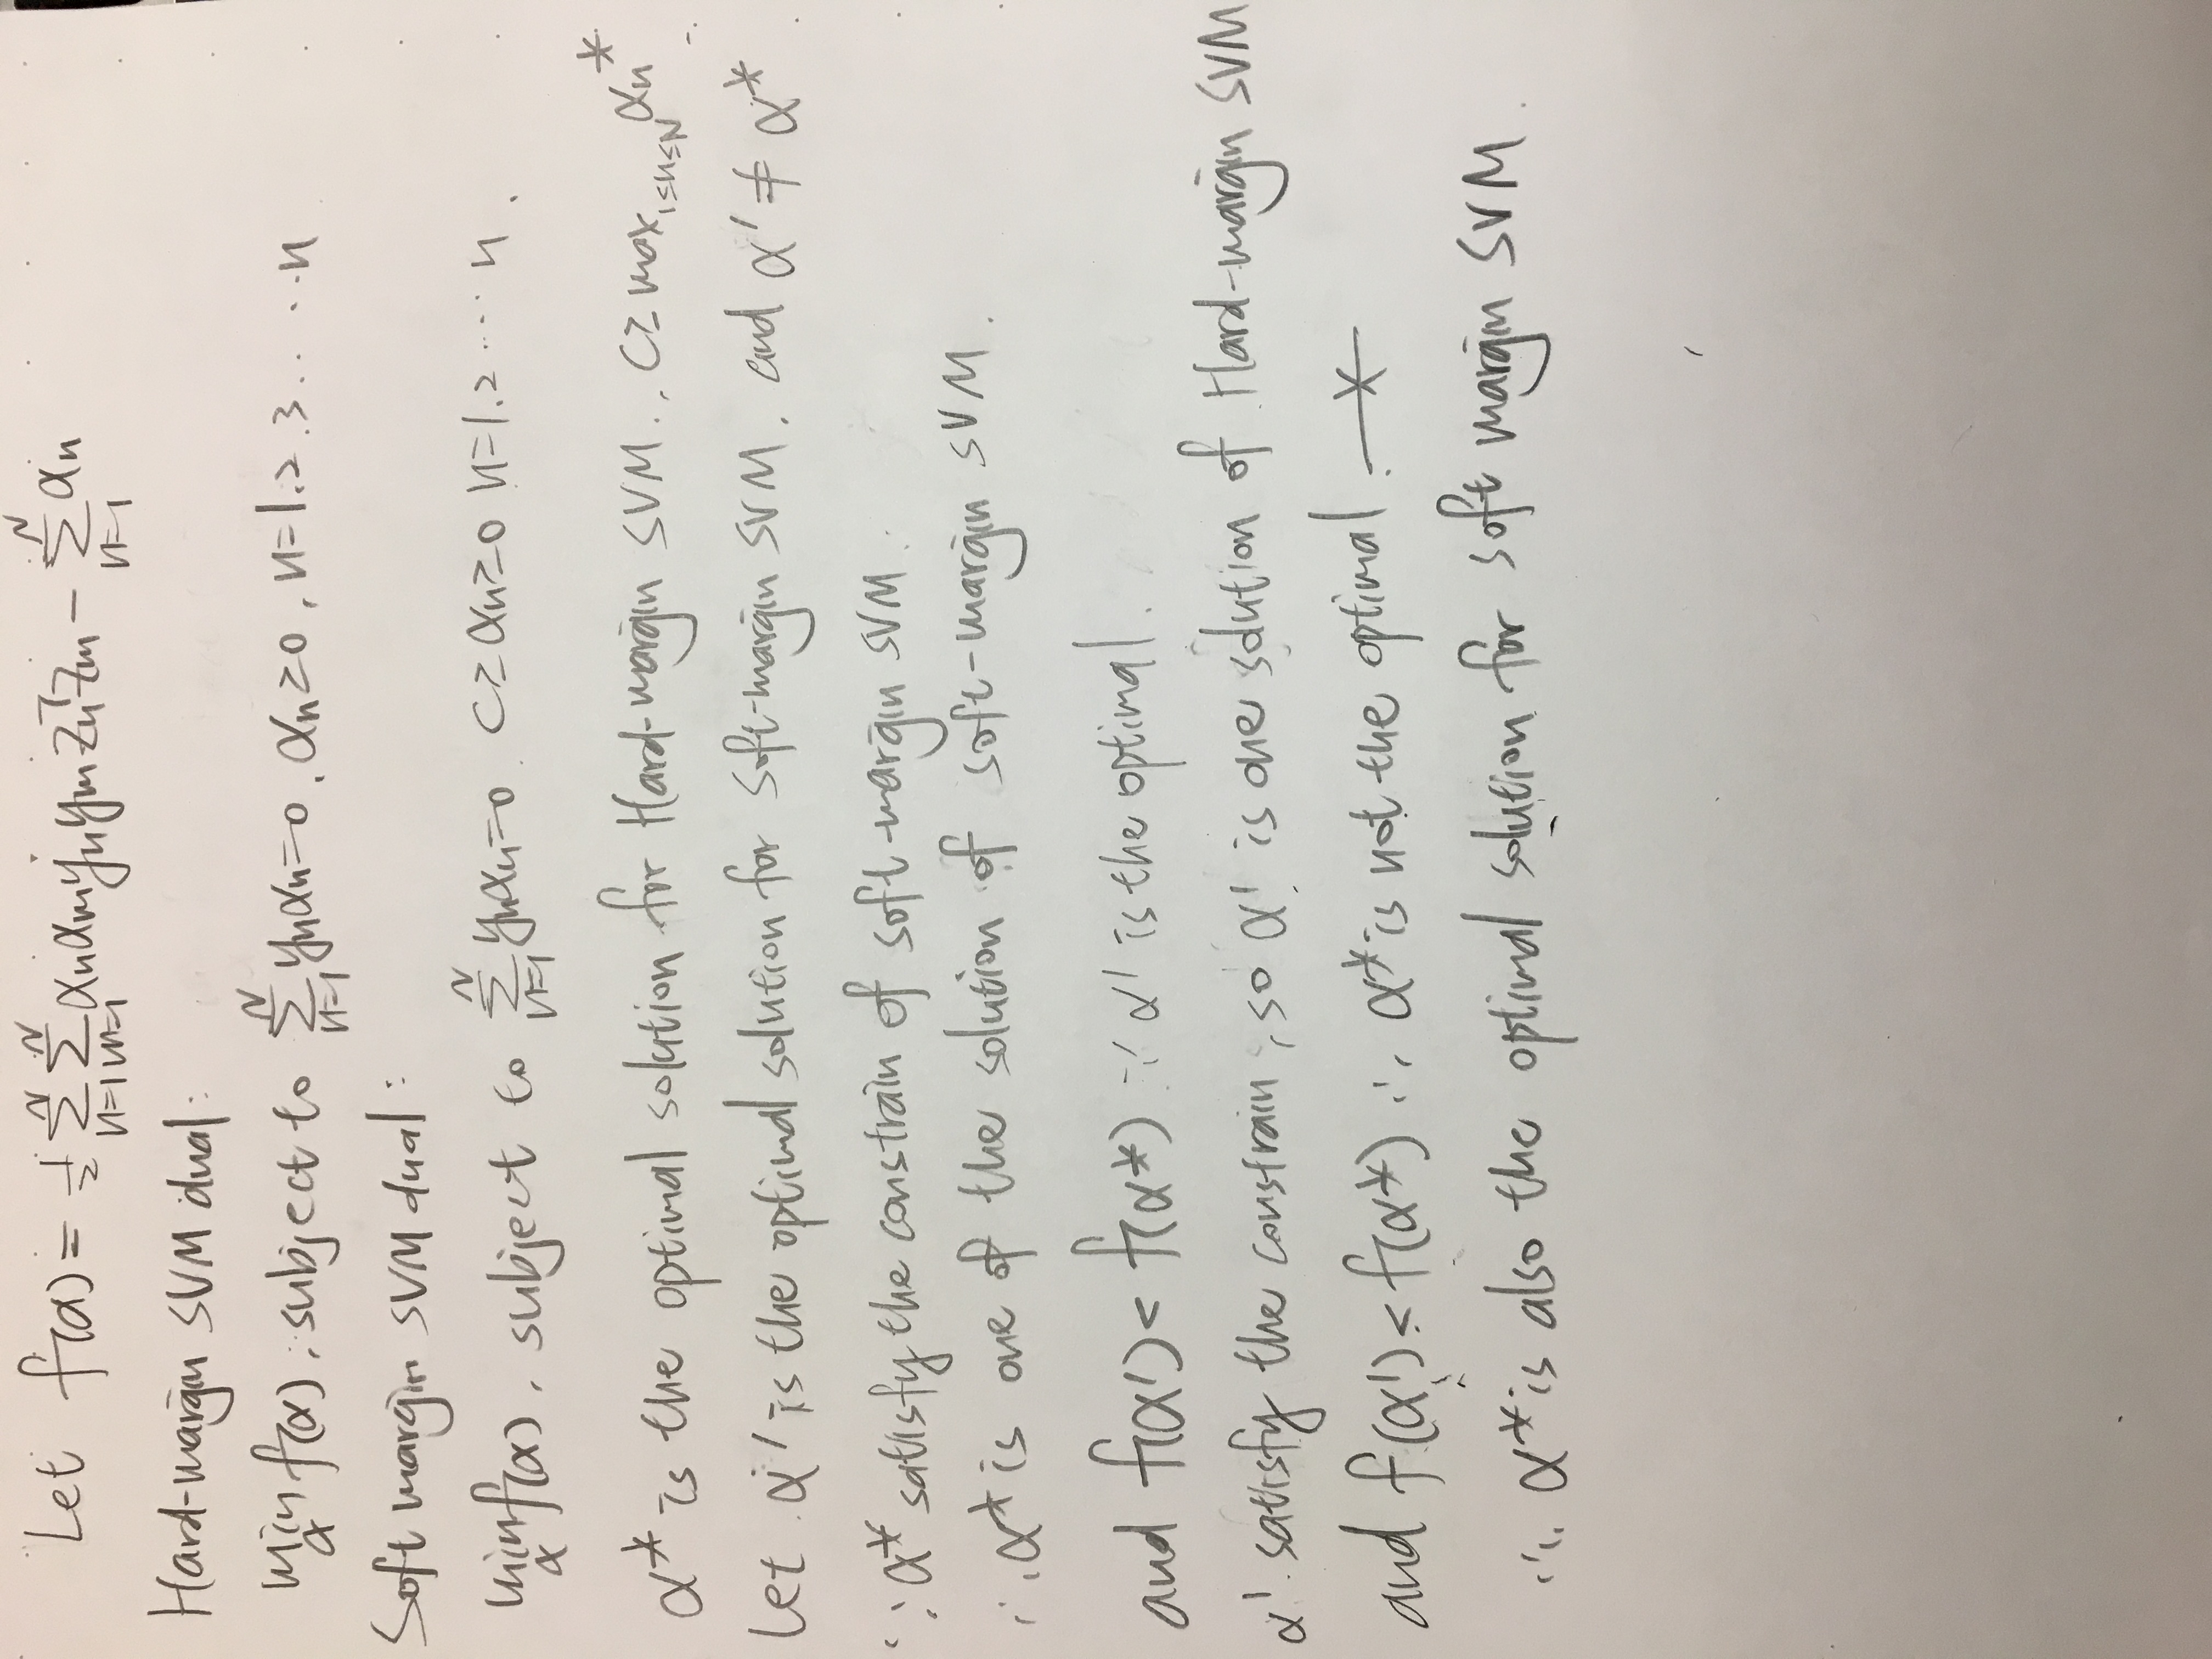 Let f(α) = ½ ∑_{n=1}^{N} ∑_{m=1}^{N} αₙαₘyₙyₘzₙᵀzₘ − ∑_{n=1}^{N} αₙ
Hard-margin SVM dual:
min_α f(α), subject to ∑_{n=1}^{N} yₙαₙ=0, αₙ≥0, n=1,2,3.....n
Soft margin SVM dual:
min_α f(α), subject to ∑_{n=1}^{N} yₙαₙ=0. C≥αₙ≥0 n=1,2.....n.
α* is the optimal solution for Hard-margin SVM., C≥max_{1≤n≤N} αₙ*
Let α' is the optimal solution for soft-margin SVM, and α' ≠ α*.
∵ α* satisfy the constrain of soft-margin SVM.
∴ α* is one of the solution of soft-margin SVM.
and f(α') < f(α*) ∵ α' is the optimal.
α' satisfy the constrain, so α' is one solution of Hard-margin SVM
and f(α') < f(α*) ∴ α* is not the optimal. ※
∴ α* is also the optimal solution for soft margin SVM.